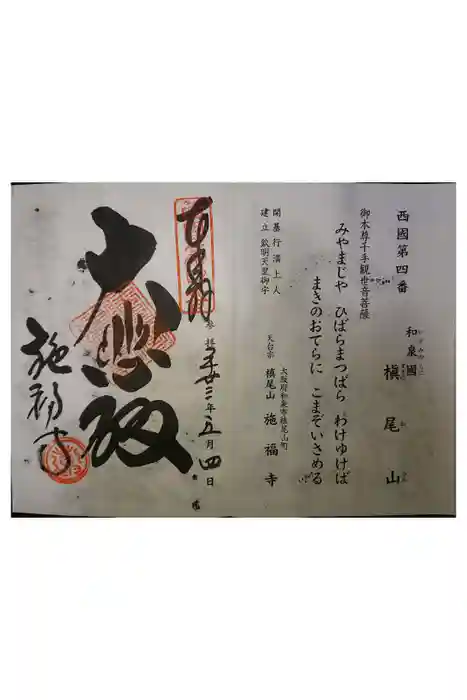 西國第四番
和泉國
いずみのくに
槇尾山
御本尊千手観世音菩薩
みやまじや ひばらまつばら わけゆけば
まきのおてらに こまぞいさめる
大阪府和泉市槇尾山町
天台宗 槙尾山 施福寺
開基 行満上人
建立 欽明天皇御宇
奉拝
参拝 平廿三年 五月 四日
大悲殿
施福寺